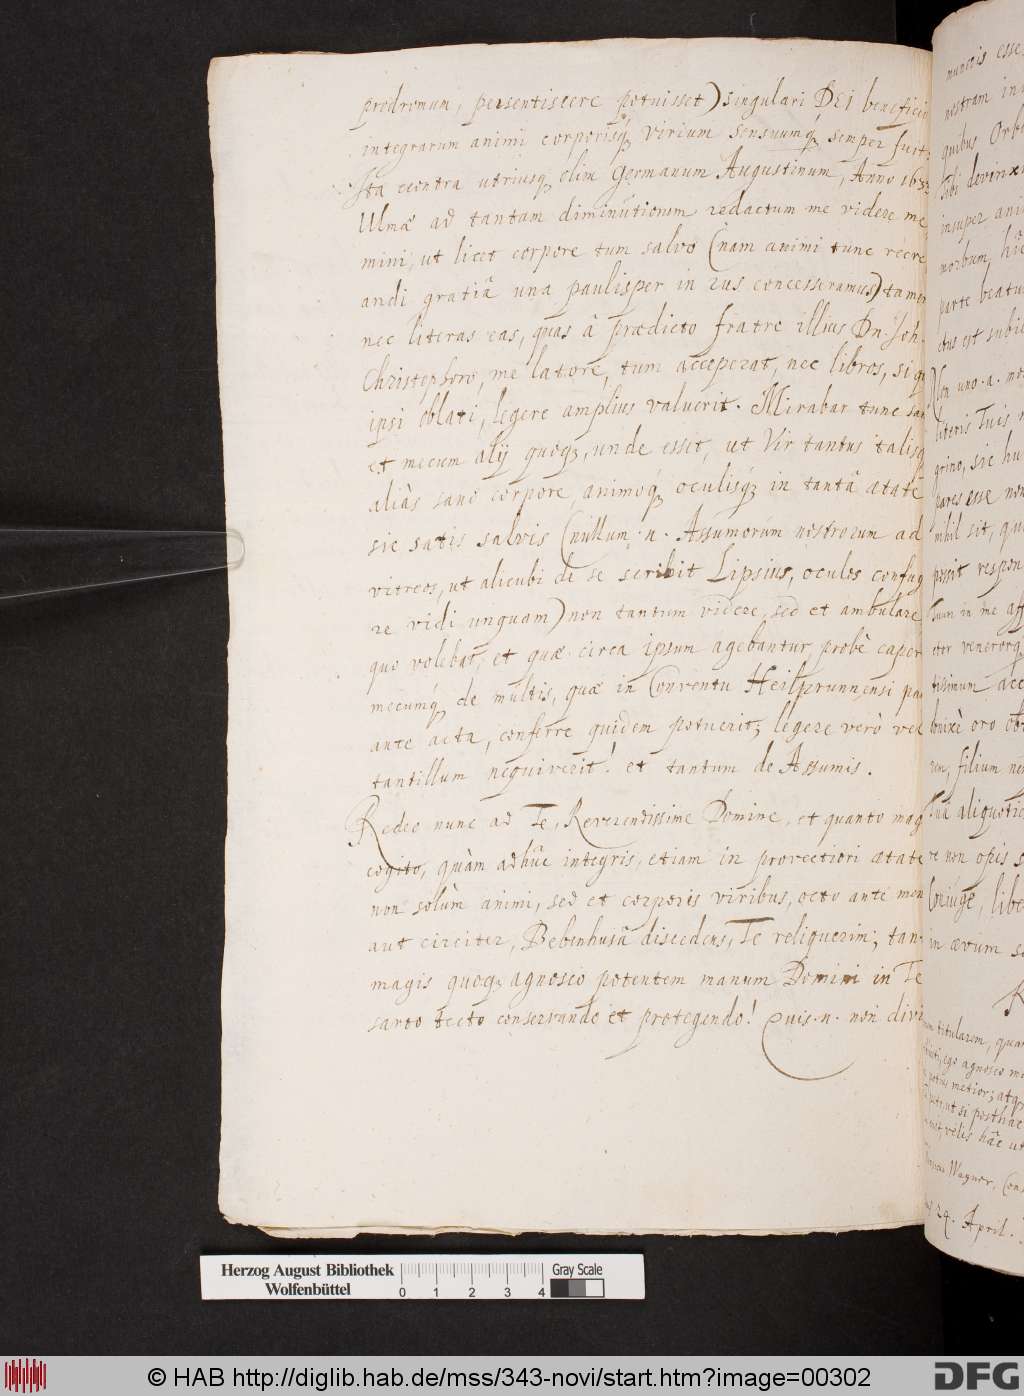 prodromum, persentiscere potuisset) singulari DEI beneficio
integrarum animi corporisq́ virium sensuumq́ semper fuit:
Ita econtra utriusq́ olim Germanum Augustinum, Anno 163
Ulmæ ad tantam diminutionem redactum me videre me
mini, ut licet corpore tum salvo (nam animi tunc recre
andi gratiâ una paulisper in rus concesseramus) tamen
nec literas eas, quas â prædicto fratre illius Dn. Joh.
Christophoro, me latore, tum acceperat, nec libros, si qui
ipsi oblati, legere amplius valuerit. Mirabar tunc sane
et mecum alij quoq, unde esset, ut Vir tantus talisq
aliàs sano corpore, animoq́ oculisq́ in tantâ ætate
sic satis salvis (nullum .n. Assumorum nostrorum ad
vitreos, ut alicubi de se scribit Lipsius, oculos confug
re vidi unquam) non tantum videre, sed et ambulare
quo volebat, et quæ circa ipsum agebantur probè caper
mecumq́ de multis, quæ in Conventu Heilprunnensi pau
ante acta, conferre quidem potuerit; legere verò vel
tantillum nequiverit! et tantum de Assumis.
Redeo nunc ad Te, Reverendissime Domine, et quanto mag
cogito, quàm adhûc integris, etiam in provectiori ætate
non solùm animi, sed et corporis viribus, octo ante men
aut circiter, Bebenhusâ discedens, Te reliquerim; tan
magis quoq agnosco potentem manum Domini in Te
sarto tecto conservando et protegendo! Quis .n. non divi
muneris esse
nostram in
quibus Orb
Tibi devinx
insuper ani
morbum, hîc
parte beatu
ctus est subi
Non uno .a. no
literis Tuis
grino, sic hu
pares esse non
nihil sit, qu
possit respon
Tum in me aff
eter venerorq
tissimum acc
bnixè oro ob
rem, filium
Tuâ aliquoti
re non opis s
Coniuge, libe
in ævum se
titularem, qua
ego agnosco me
potius metior; atq
ut si posthac
velis hâc ut
Wagner, Cons
24. April.
Herzog August Bibliothek
Wolfenbüttel
0 1 2 3 4
Gray Scale
© HAB http://diglib.hab.de/mss/343-novi/start.htm?image=00302
DFG